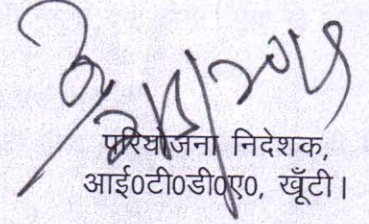 परियोजना निदेशक,
आई0टी0डी0ए0, खूँटी।